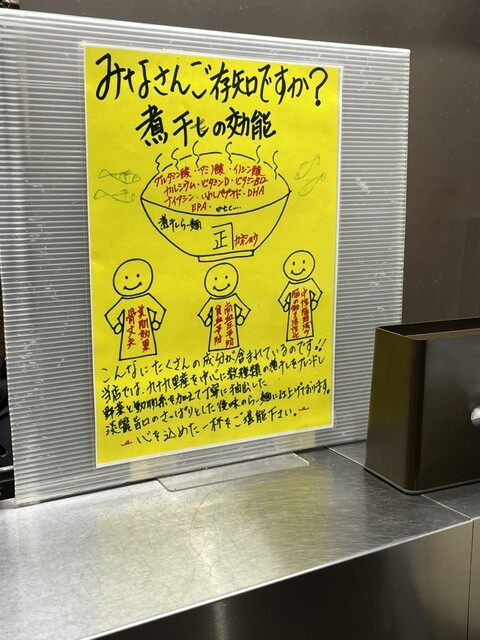 みなさんご存知ですか?
煮干しの効能
グルタミン酸・アミノ酸・イノシン酸
カルシウム・ビタミンD・ビタミンB12
ナイアシン・ ・DHA
EPA・ etc....
煮干しらー麺
正
カネショウ
美肌効果
骨丈夫
高血圧予防
貧血予防
中性脂肪減少
こんなにたくさんの成分が含まれているのです!!
当店では、九十九里産を中心に数種類の煮干しをブレンドし
野菜と動物系を加えて丁寧に抽出した
淡麗旨口のさっぱりとした後味のらー麺に仕上げております。
心を込めた一杯をご堪能下さい。